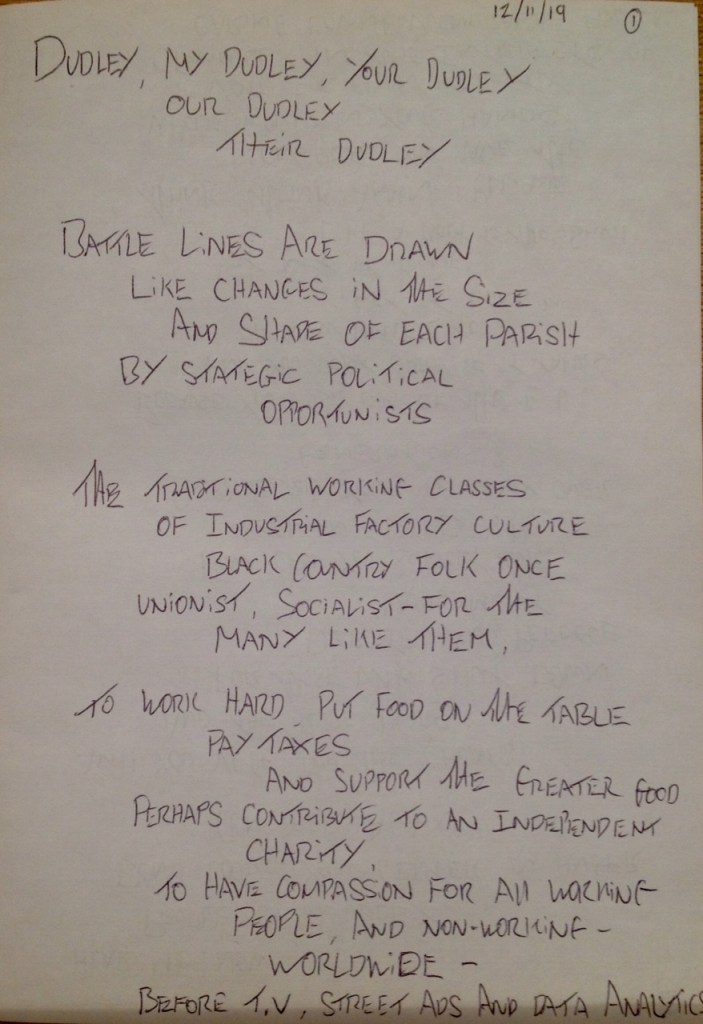 12/11/19 ①
DUDLEY, MY DUDLEY, YOUR DUDLEY
OUR DUDLEY
THEIR DUDLEY
BATTLE LINES ARE DRAWN
LIKE CHANGES IN THE SIZE
AND SHAPE OF EACH PARISH
BY STATEGIC POLITICAL
OPPORTUNISTS
THE TRADITIONAL WORKING CLASSES
OF INDUSTRIAL FACTORY CULTURE
BLACK COUNTRY FOLK ONCE
UNIONIST, SOCIALIST-FOR THE
MANY LIKE THEM,
TO WORK HARD, PUT FOOD ON THE TABLE
PAY TAXES
AND SUPPORT THE GREATER GOOD
PERHAPS CONTRIBUTE TO AN INDEPENDENT
CHARITY,
TO HAVE COMPASSION FOR All WORKING
PEOPLE, AND NON-WORKING -
WORLDWIDE -
BEFORE T.V, STREET ADS AND DATA ANALYTICS